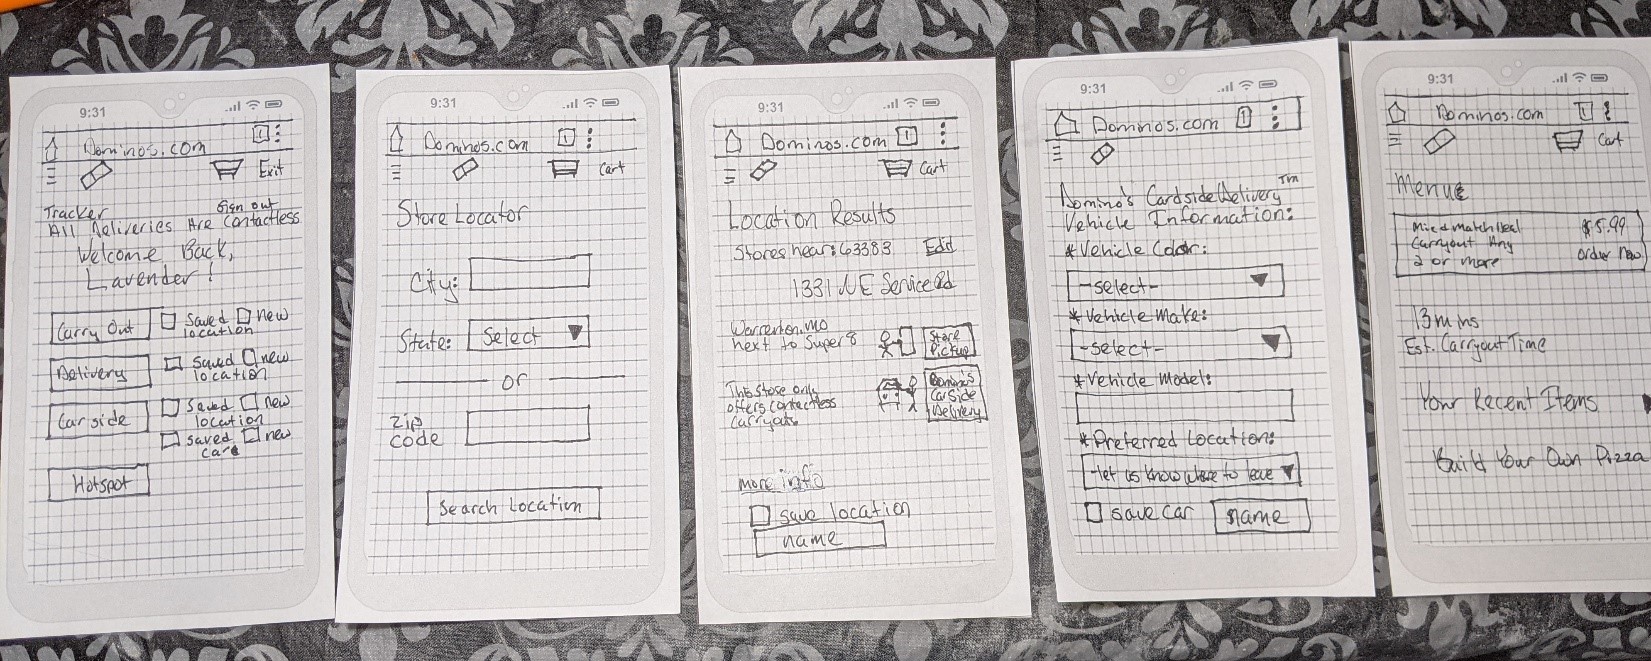 9:31
Dominos.com
1
Exit
Tracker
Sign out
All Deliveries Are Contactless
Welcome Back,
Lavender!
Carry Out
Saved
new
location
Delivery
Saved
new
location
Car side
Saved
new
location
saved
new
care
Hotspot
9:31
Dominos.com
1
Cart
Store Locator
City:
State:
Select
or
Zip
code
Search Location
9:31
Dominos.com
1
Cart
Location Results
Stores near: 63383
Edit
1331 NE Service Rd
Warrenton, MO
next to Super 8
Store
Pickup
This store only
offers contactless
carryout.
Domino's
Carside
Delivery
more info
save location
name
9:31
Dominos.com
1
Domino's Cardside Delivery TM
Vehicle Information:
*Vehicle Color:
-select-
*Vehicle Make:
-select-
*Vehicle Model:
*Preferred Location:
-let us know where to leave
save car
name
9:31
Dominos.com
1
Cart
Menu
$5.99
Carryout Any
2 or more
order now
13 mins
Est. Carryout Time
Your Recent Items
Build Your Own Pizza